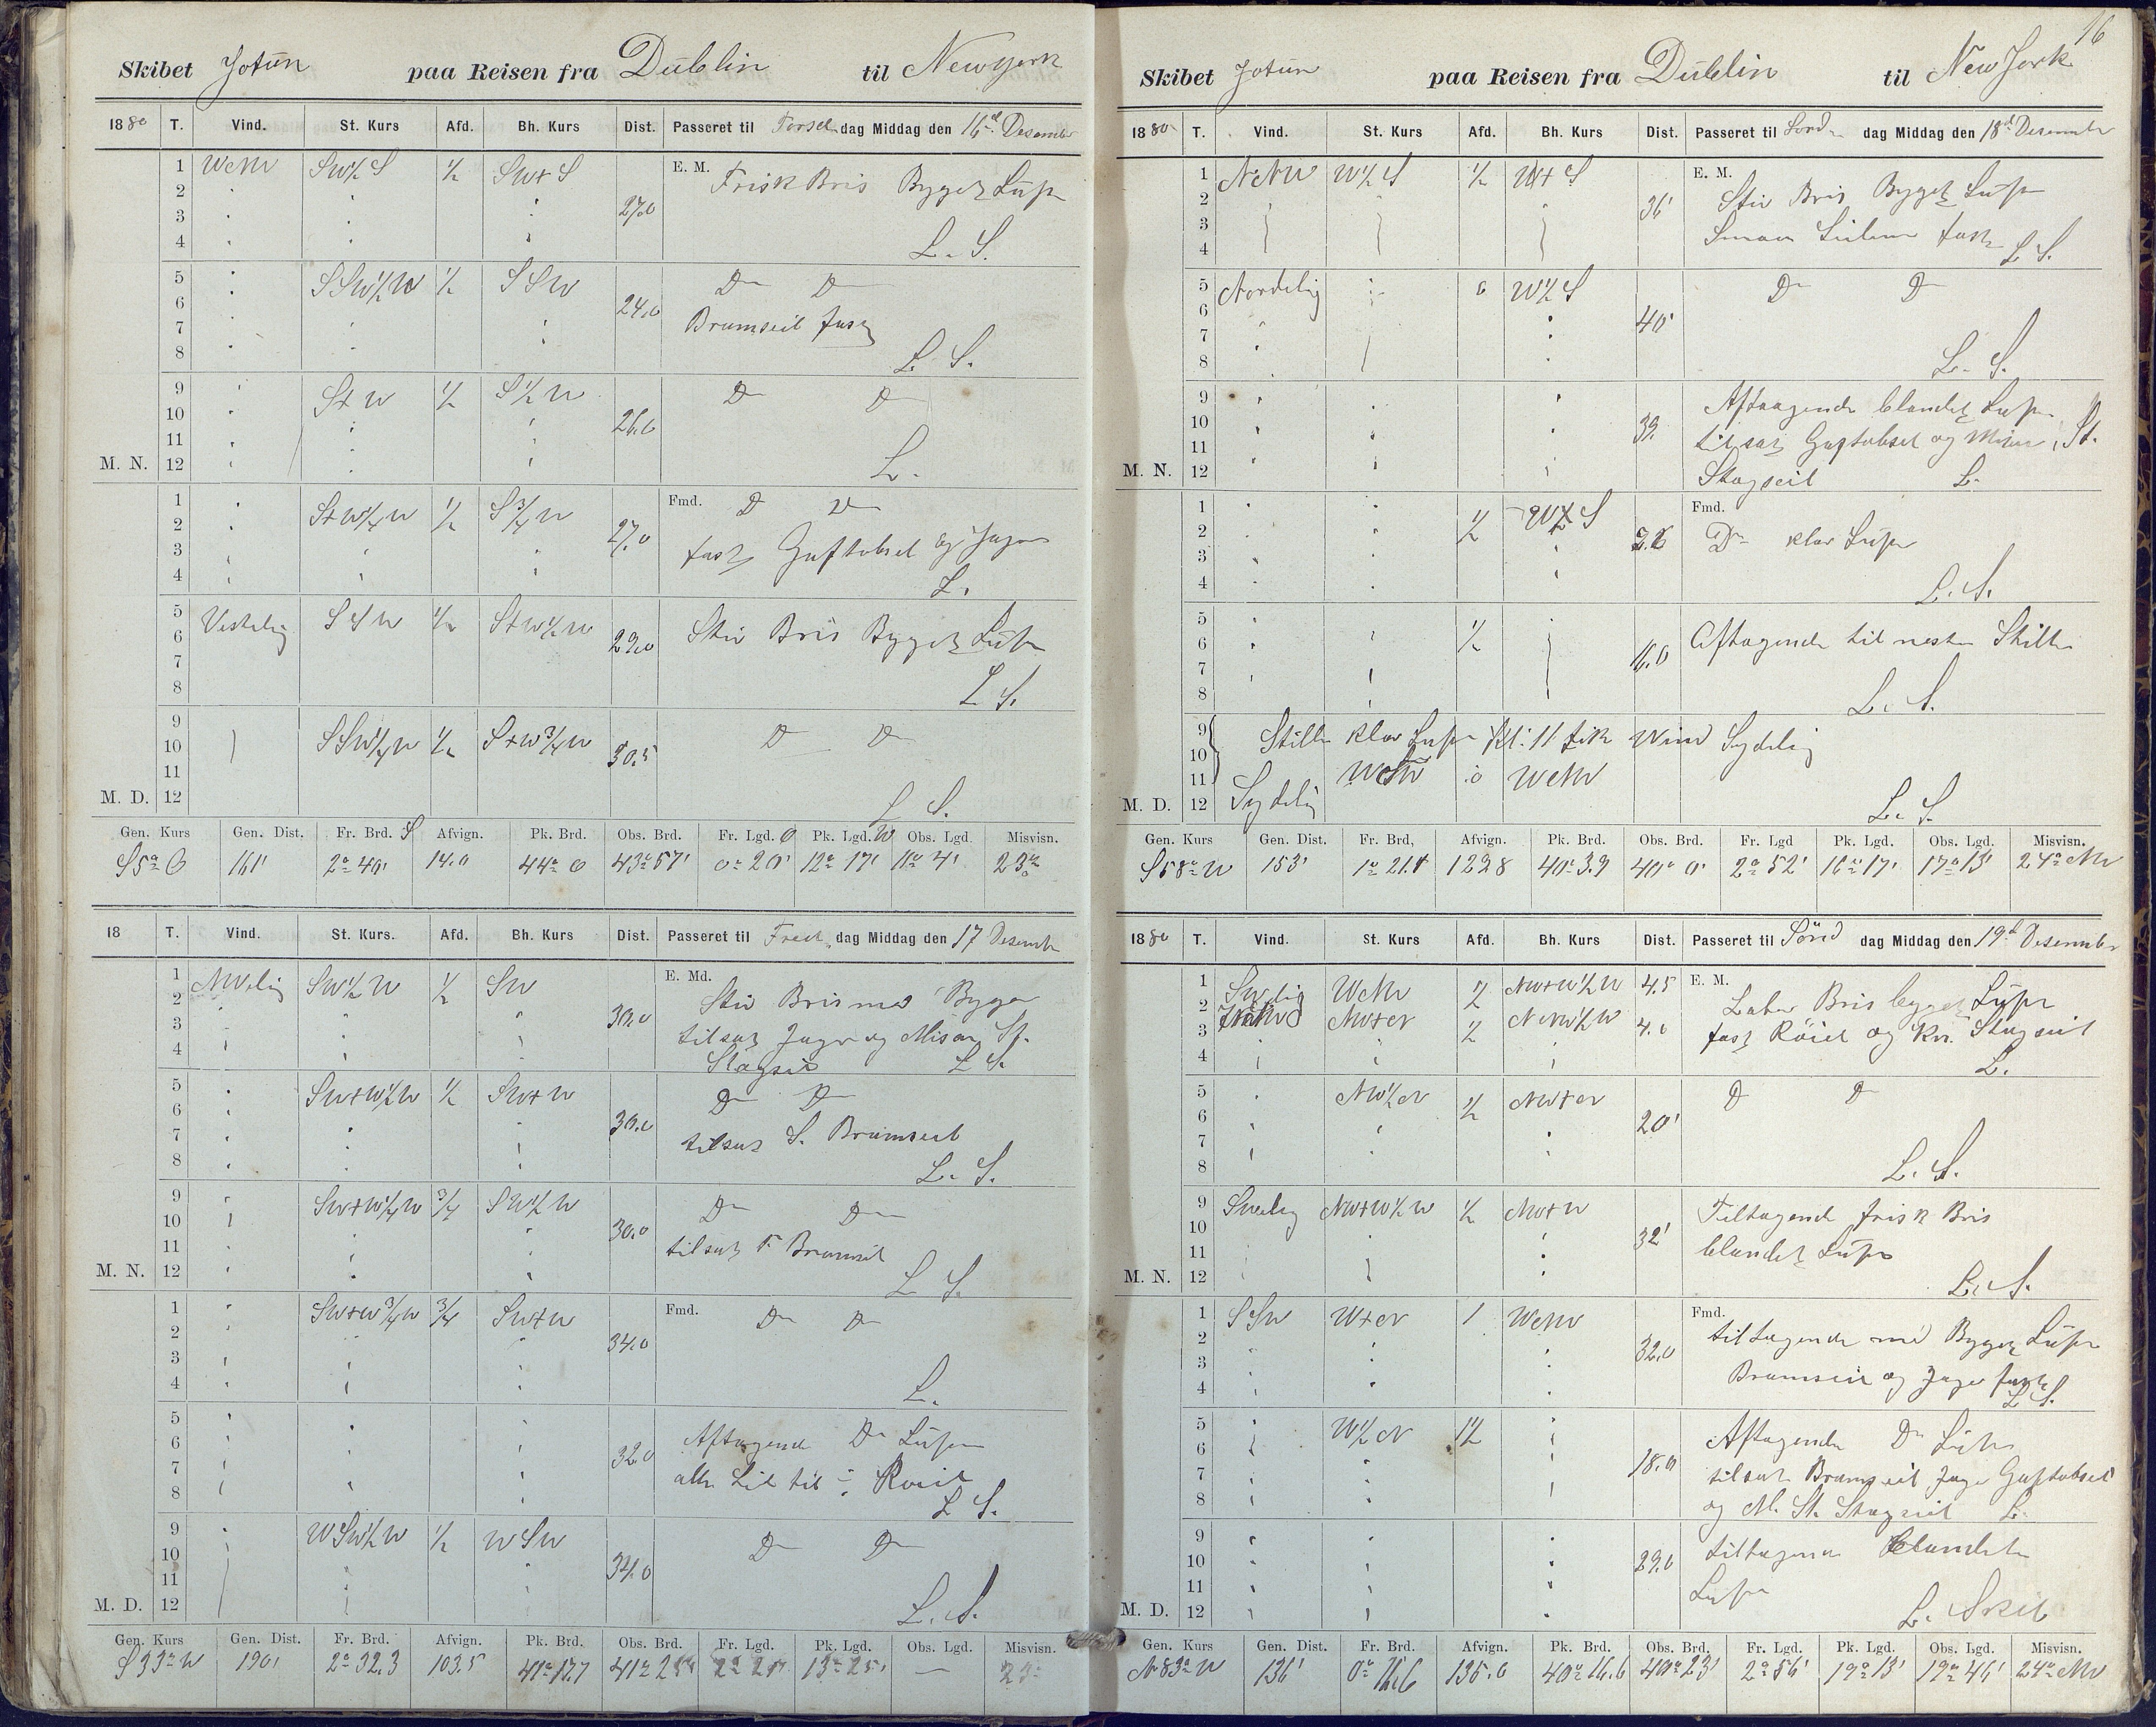 Skibet Jotun paa Reisen fra Dublin til New York
1880 T. Vind. St. Kurs Afd. Bh. Kurs Dist. Passeret til Torsdag Middag den 16d Desember
1 WNW SW½S ½ SW+S E. M. Frisk Bris Byget Luft
2
3 27.0
4 L. S.
5 SSW½W ½ SSW D D
6 24.0 Bramseil fast
7
8 L. S.
9 S+W ½ S½W D D
10 26.0
11
M. N. 12 L.
1 S+W¼W ½ S¾W Fmd. D D
2 27.0 fast Gaftobseil og Jager
3
4 L.
5 Vestelig SSW ½ S+W½W Stiv Bris Byget Luft
6 29.0
7
8 L S.
9 SSW¼W ½ S+W¾W D D
10 30.5
11
M. D. 12 L S.
Gen. Kurs Gen. Dist. Fr. Brd. S Afvign. Pk. Brd. Obs. Brd. Fr. Lgd. O Pk. Lgd. W Obs. Lgd. Misvisn.
S5°O 161' 2° 40' 14.0 44° 0 43° 57' 0° 20' 12° 17' 11° 4' 23°
18 T. Vind. St. Kurs. Afd. Bh. Kurs Dist. Passeret til Fredag Middag den 17 Desember
1 NWelig SW½W ½ SW E. Md. Stiv Bris med Byger
2 30.0
3 tilsat Jager og Misan St.
4 Stagseil L S.
5 SW+W½W ½ SW+W D D
6 30.0
7 tilsat S. Bramseil
8 L. S.
9 SW+W¼W ¾ SW½W D D
10 30.0
11 tilsat F. Bramseil
M. N. 12 L S.
1 SW+W¾W ¾ SW+W Fmd. D D
2 34.0
3
4 L.
5 Aftagende D Luft
6 32.0
7 alle Seil til Roiel
8 L S.
9 WSW½W ½ WSW D D
10 34.0
11
M. D. 12 L. S.
Gen. Kurs Gen. Dist. Fr. Brd. Afvign. Pk. Brd. Obs. Brd. Fr. Lgd. Pk. Lgd. Obs. Lgd. Misvisn.
S33°W 190' 2° 32.3 103.5 41° 12.7 13° 25' — 23°
16
Skibet Jotun paa Reisen fra Dublin til New York
1880 T. Vind. St. Kurs Afd. Bh. Kurs Dist. Passeret til Lördag Middag den 18d Desember
1 NNW W½S ½ W+S E. M.
2 36' Stiv Bris Byget Luft
3
4 L S.
5 Nordelig 0 W½S D D
6 40'
7
8 L. S.
9 Aftagende blandet Luft
10 39. tilsat Gaftobseil og Misan St.
11
M. N. 12 Stagseil L.
1 ½ Fmd.
2 D klar Luft
3
4 L. S.
5 ½
6 16.0 Aftagende til nesten Stille
7
8 L. S.
9 Stille klar Luft Kl. 11 fik Vind Sydelig
10
11 WNW 0 WNW
M. D. 12 Sydelig L. S.
Gen. Kurs Gen. Dist. Fr. Brd, Afvign. Pk. Brd. Obs. Brd. Fr. Lgd Pk. Lgd. Obs. Lgd. Misvisn.
S58°W 153' 1° 21.1 129.8 40° 3.9 40° 0' 2° 52' 16° 17' 17° 13' 24° NW
1880 T. Vind. St. Kurs Afd. Bh. Kurs Dist. Passeret til Sönddag Middag den 19d Desember
1 SWelig WNW ½ NW+W½W 4.5 E. M.
2 Laber Bris byget Luft
3 NW+N ½ NNW½W 4.0 fast Röiel og Kn. Stagseil
4 L.
5 NW½N ½ NW+N D D
6 20'
7
8 L. S.
9 SWelig NW+W½W ½ NW+W Tiltagende frisk Bris
10
11 32' blandet Luft
M. N. 12 L. S.
1 SSW W+N 1 WNW Fmd.
2 32.0 tiltagende med Byget Luft
3
4 Bramseil og Jager fast L S.
5 W½N 1½ Aftagende D Luft
6
7 18.0 tilsat Bramseil Jager Gaftobseil
8 og M. St. Stagseil L.
9 tiltagende blandet
10 29.0
11 Luft
M. D. 12 L. Skeib
Gen. Kurs Gen. Dist. Fr. Brd. Afvign. Pk. Brd. Obs. Brd. Fr. Lgd. Pk. Lgd. Obs. Lgd. Misvisn.
N83°W 136' 0° 16.6 135.0 40° 16.6 40° 23' 2° 56' 19° 13' 19° 46' 24° NW